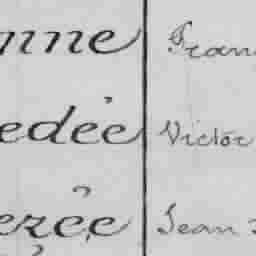 nne Fran
edée Victor
ezée Jean